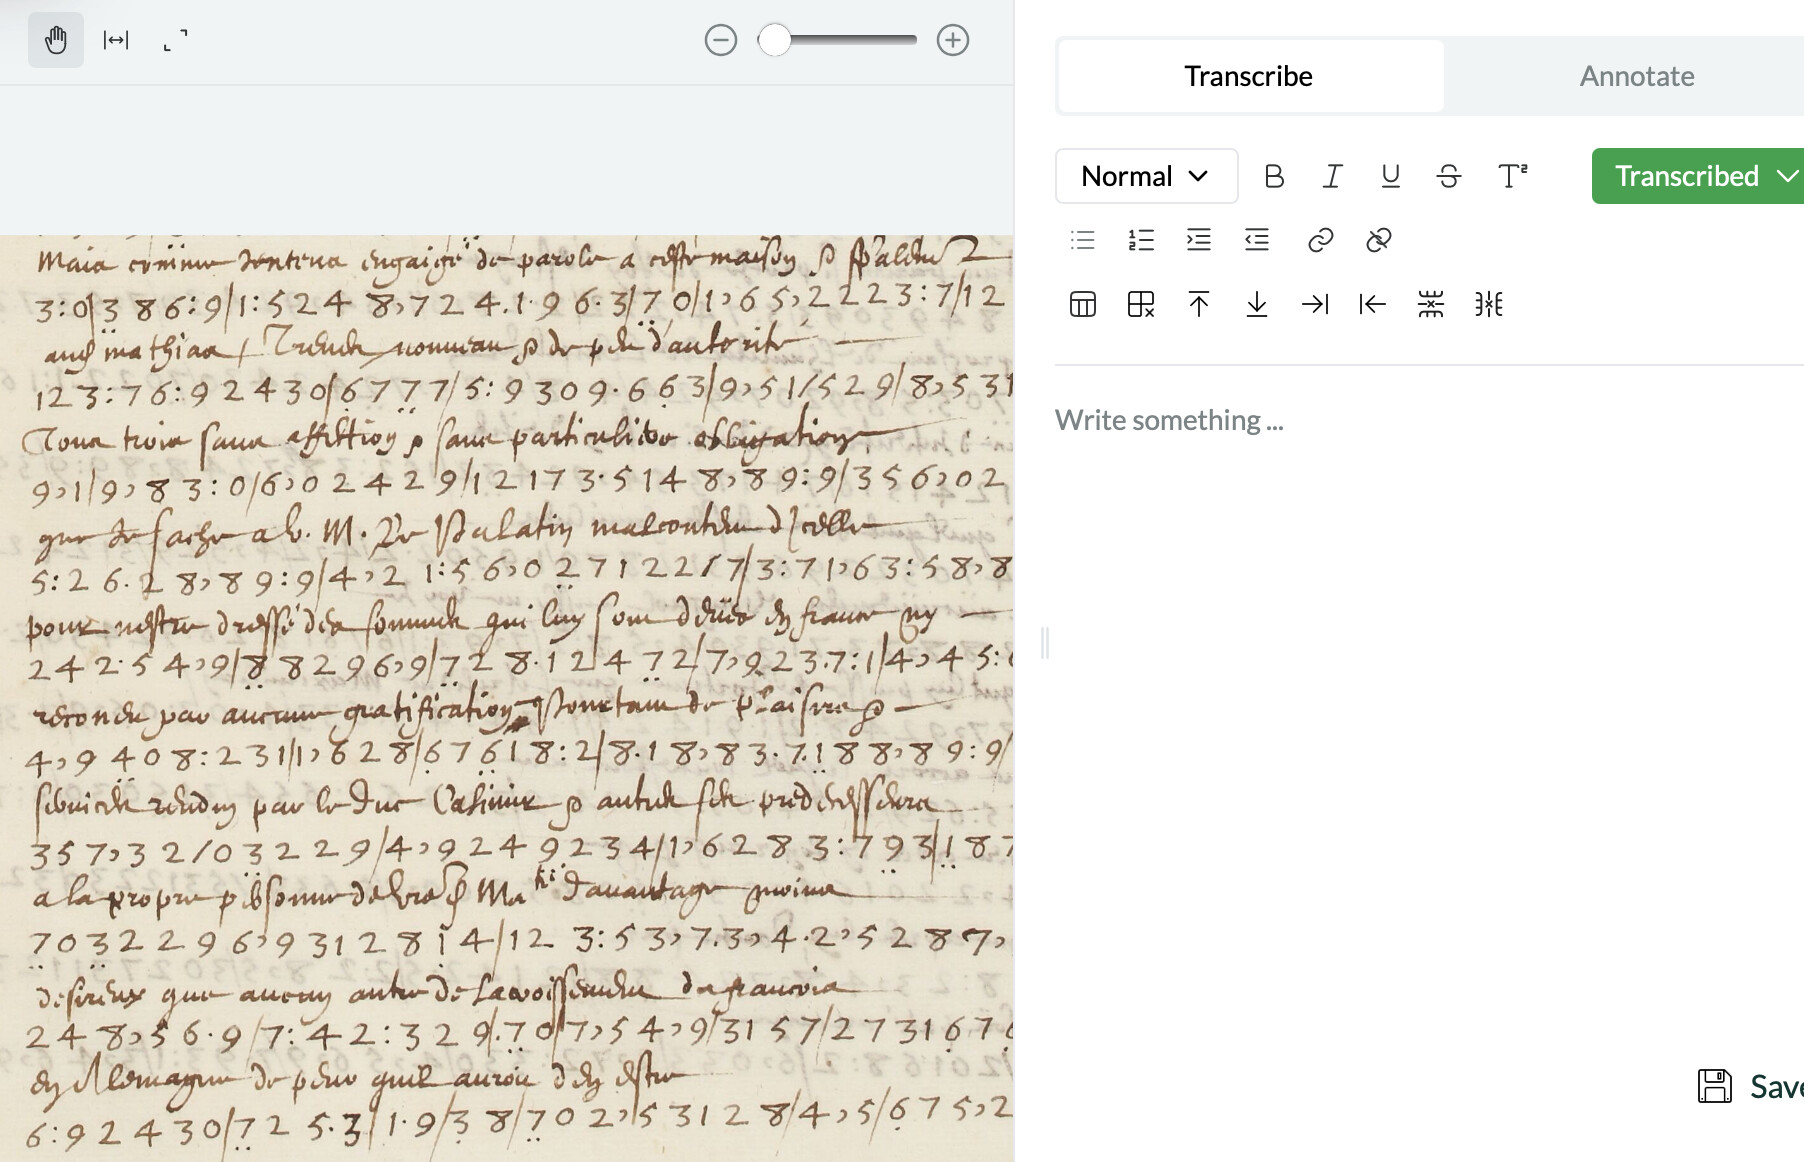 Transcribe
Annotate
Normal
B I U S T²
Transcribed
Write something ...
Save
Maia comme engaigé de parole a ceste maison
3:0/3 8 6:9/1:5 2 4 8,7 2 4.1.9 6.3/7 0/1,6 5,2 2 2 3:7/1 2
mathias nouveau de peu d'autorite
1 2 3:7 6:9 2 4 3 0/6 7 7 7/5:9 3 0 9.6 6 3/9,5 1/5 2 9/8,5 3 1
Tous trois sans affiction sans particuliere obligation
9,1/9,8 3:0/6,0 2 4 2 9/1 2 1 7 3.5 1 4 8,8 9:9/3 5 6,0 2
que Je sache a v. M. Le Palatin malcontent d'icelle
5:2 6.2 8,8 9:9/4,2 1:5 6,0 2 7 1 2 2 1 7/3:7 1,6 3:5 8,8
pour nestre dressé des sommes qui luy sont deües en france ny
2 4 2.5 4,9/8 8 2 9 6,9/7 2 8.1 2 4 7 2/7,9 2 3.7:1/4,4 5:
par aucune gratification de plaisirs
4,9 4 0 8:2 3 1/1,6 2 8/6 7 6 1 8:2/8.1 8,8 3.7.1 8 8,8 9:9/
services rendus par le duc Casimir autres ses predecesseurs
3 5 7,3 2/0 3 2 2 9/4,9 2 4 9 2 3 4/1,6 2 8 3:7 9 3/1 8 7
a la propre personne de Ma davantage moins
7 0 3 2 2 9 6,9 3 1 2 8 1 4/1 2 3:5 3,7.3,4.2,5 2 8 7,
desireux que aucun autre de francois
2 4 8,5 6.9/7:4 2:3 2 9.7 0/7,5 4,9/3 1 5 7/2 7 3 1 6 7 6
en Allemagne de peur quil auroit d'en estre
6:9 2 4 3 0/7 2 5.3/1.9/3 8/7 0 2,5 3 1 2 8/4,5/6 7 5,2